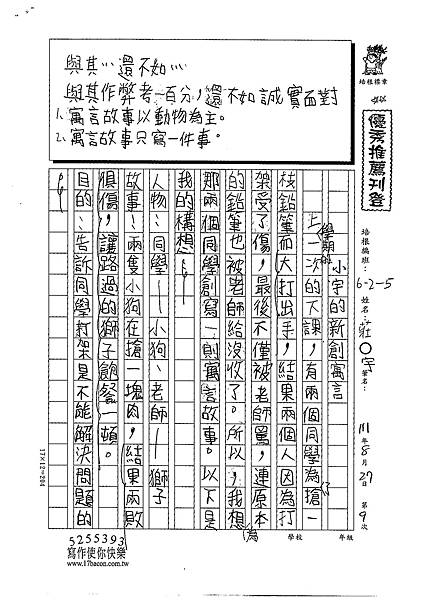 與其…還不如…
與其作弊考一百分，還不如誠實面對
1.寓言故事以動物為主。
2.寓言故事只寫一件事。
培根標章
優秀推薦刊登
培根總班：6-2-5 姓名：莊〇宇 筆名：
111年8月27日 第9次
小宇的新創寓言
上學期的一次的下課，有兩個同學為搶一
枝鉛筆而大打出手，結果兩個人因為打
架受了傷，最後不僅被老師罵，連原本
的鉛筆也被老師給沒收了。所以，我想為
那兩個同學創寫一則寓言故事。以下是
我的構想：
人物：同學——小狗、老師——獅子
故事：兩隻小狗在搶一塊肉，結果兩敗
俱傷，讓路過的獅子飽餐一頓。
目的：告訴同學打架是不能解決問題的
學校 年級
17×12=204
5255393
寫作使你快樂
www.17bacon.com.tw